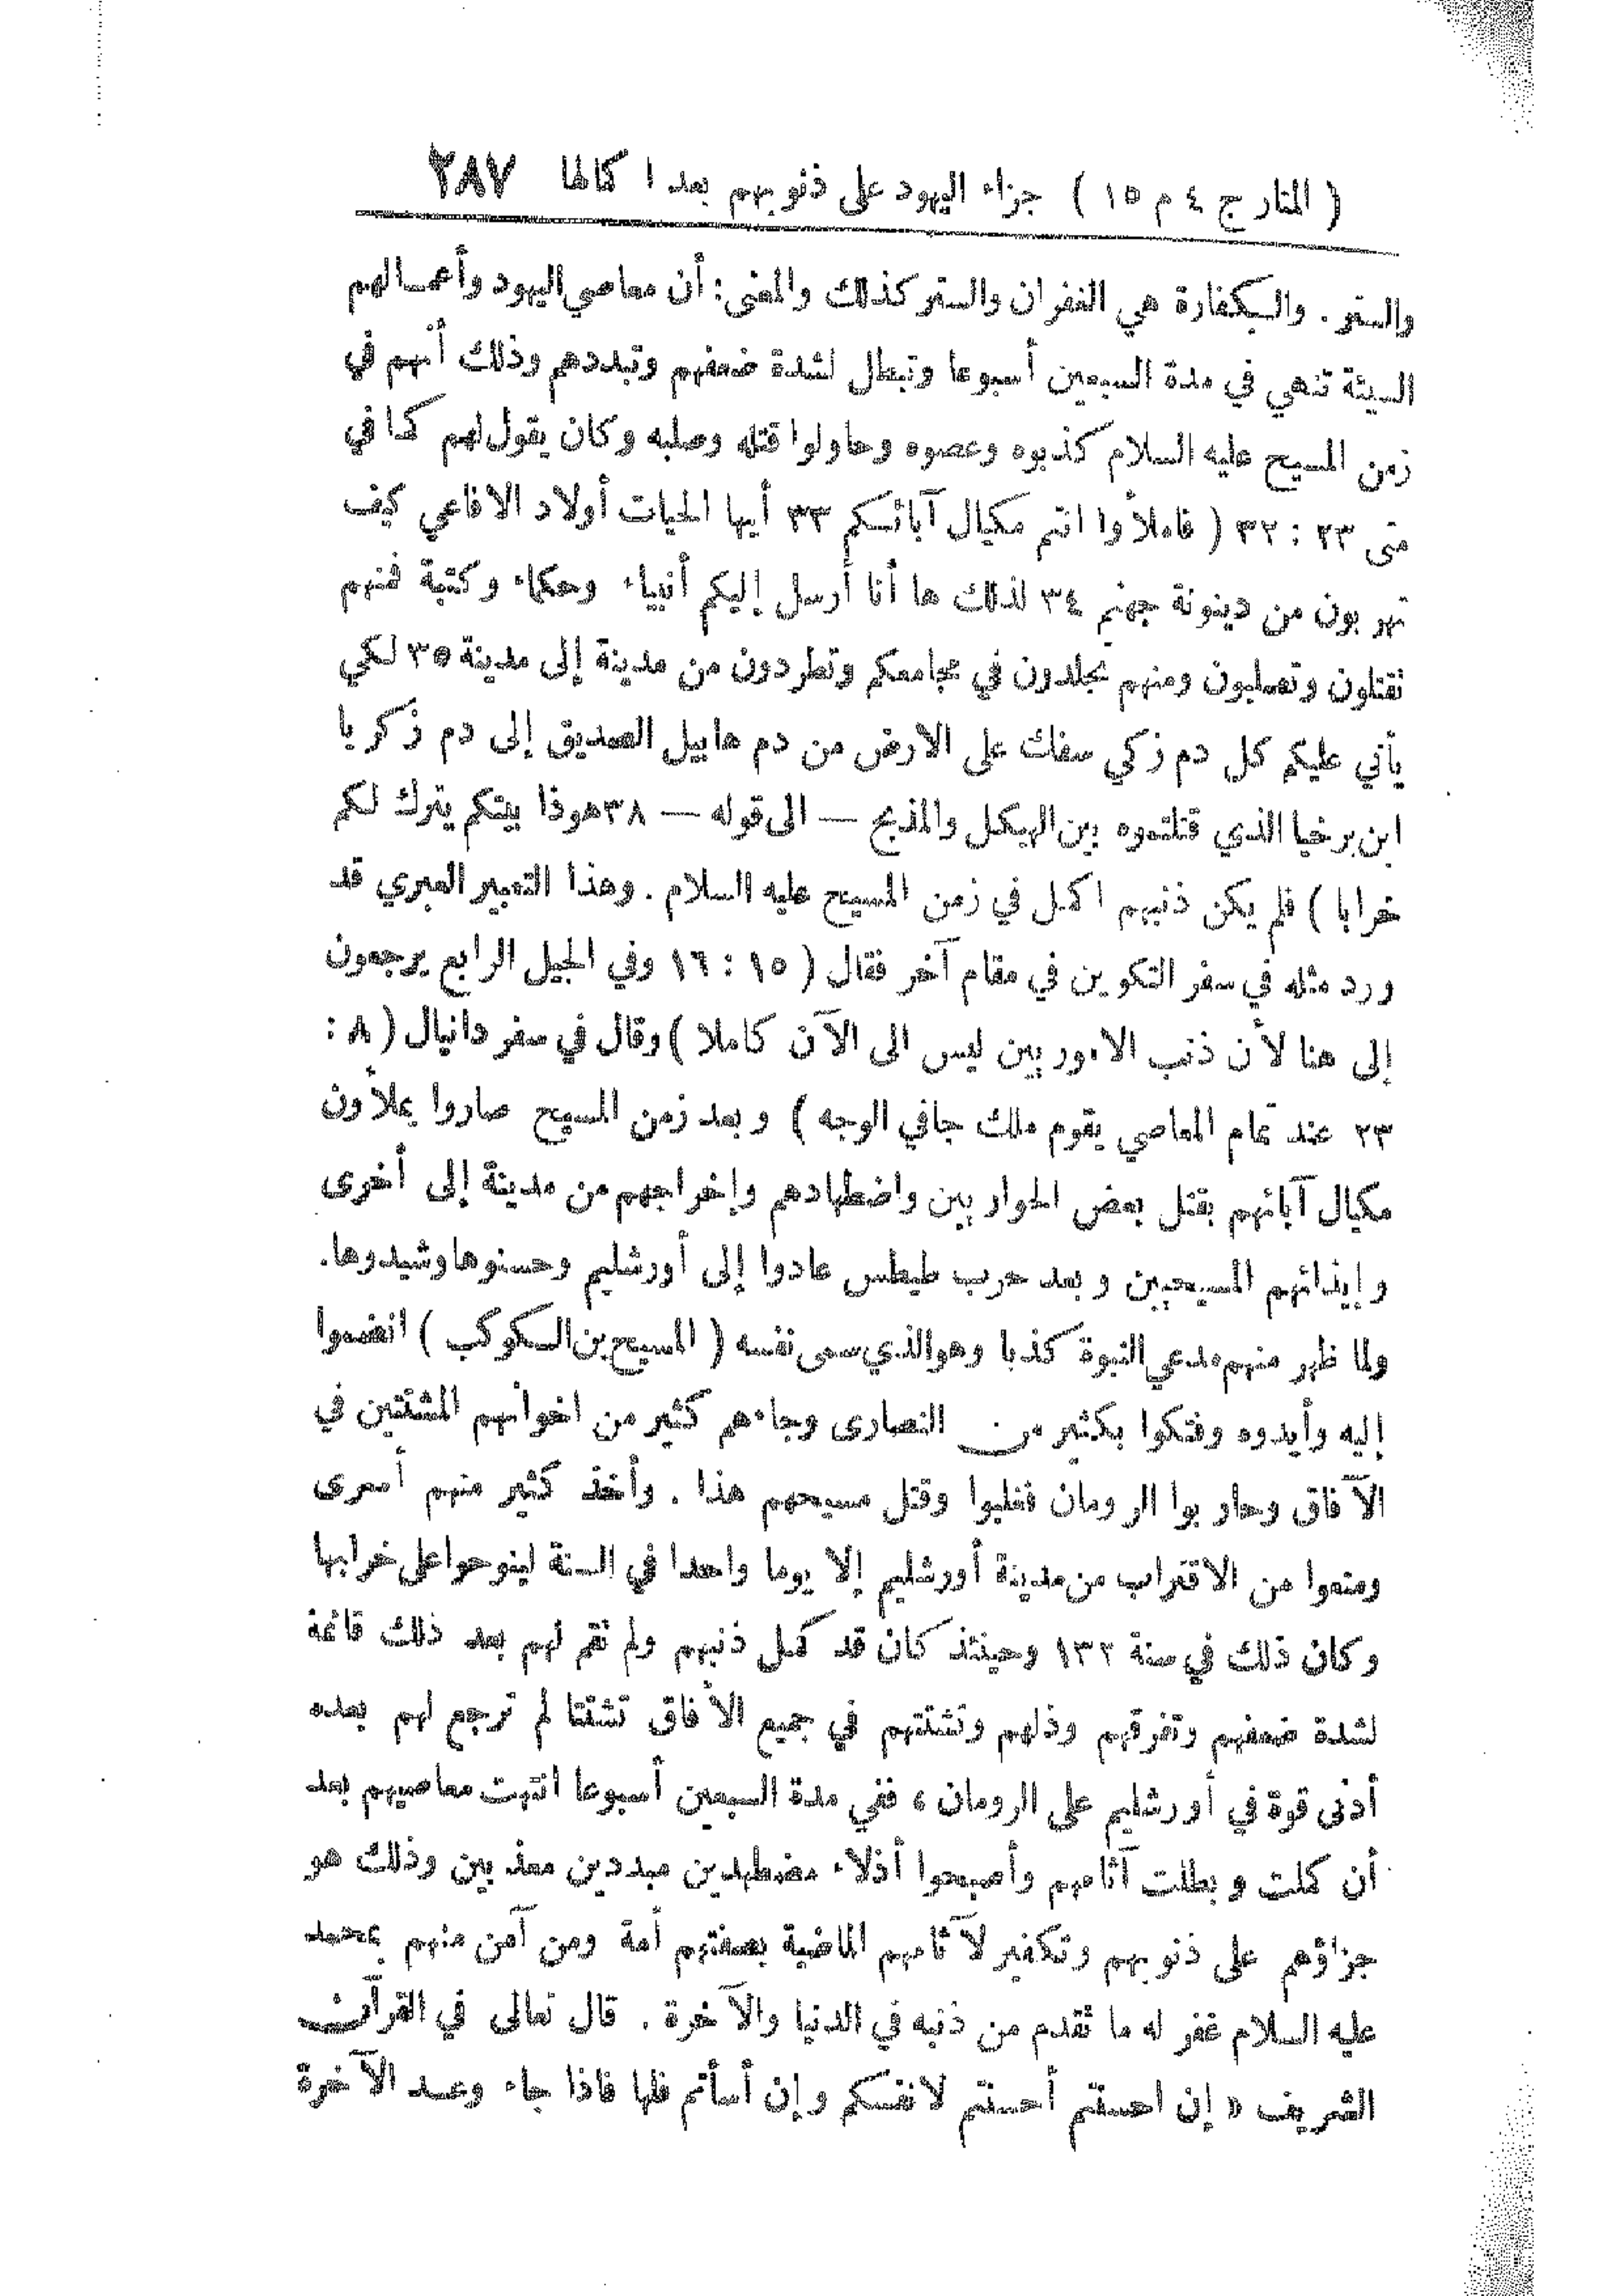 ( المنار ج ٤ م ١٥ ) جزاء اليهود على ذنوبهم بعد اكمالها ٢٨٧
والستر . والكفارة هي الغفران والستر كذلك والمعنى : أن معاصي اليهود وأعمالهم
السيئة تنهي في مدة السبعين أسبوعا وتبطل لشدة ضعفهم وتبددهم وذلك أنهم في
زمن المسيح عليه السلام كذبوه وعصوه وحاولوا قتله وصلبه وكان يقول لهم كما في
متى ٢٣ : ٣٢ ( فاملأوا انتم مكيال آبائكم ٣٣ أيها الحيات أولاد الافاعي كيف
تهربون من دينونة جهنم ٣٤ لذلك ها أنا أرسل إليكم أنبياء وحكماء وكتبة فمنهم
تقتلون وتصلبون ومنهم تجلدون في مجامعكم وتطردون من مدينة إلى مدينة ٣٥ لكي
يأتي عليكم كل دم زكي سفك على الارض من دم هابيل الصديق إلى دم زكريا
ابن برخيا الذي قتلتموه بين الهيكل والمذبح — الى قوله — ٣٨ هوذا بيتكم يترك لكم
خرابا ) فلم يكن ذنبهم اكمل في زمن المسيح عليه السلام . وهذا التعبير العبري قد
ورد مثله في سفر التكوين في مقام آخر فقال ( ١٥ : ١٦ وفي الجيل الرابع يرجعون
إلى هنا لأن ذنب الاموريين ليس الى الآن كاملا ) وقال في سفر دانيال ( ٨ :
٢٣ عند تمام المعاصي يقوم ملك جافي الوجه ) وبعد زمن المسيح صاروا يملأون
مكيال آبائهم بقتل بعض الحواريين واضطهادهم وإخراجهم من مدينة إلى أخرى
وإيذائهم المسيحيين وبعد حرب طيطس عادوا إلى أورشليم وحسنوها وشيدوها .
ولما ظهر منهم مدعي النبوة كذبا وهو الذي سمى نفسه ( المسيح بن الكوكب ) انضموا
إليه وأيدوه وفتكوا بكثير من النصارى وجاءهم كثير من اخوانهم المشتتين في
الآفاق وحاربوا الرومان فغلبوا وقتل مسيحهم هذا . وأخذ كثير منهم أسرى
ومنعوا من الاقتراب من مدينة أورشليم إلا يوما واحدا في السنة لينوحوا على خرابها
وكان ذلك في سنة ١٣٢ وحينئذ كان قد كمل ذنبهم ولم تقم لهم بعد ذلك قائمة
لشدة ضعفهم وتفرقهم وذلهم وتشتتهم في جميع الآفاق تشتتا لم ترجع لهم بعده
أدنى قوة في أورشليم على الرومان ، ففي مدة السبعين أسبوعا انتهت معاصيهم بعد
أن كملت وبطلت آثامهم وأصبحوا أذلاء مضطهدين مبددين معذبين وذلك هو
جزاؤهم على ذنوبهم وتكفير لآثامهم الماضية بصفتهم أمة ومن آمن منهم بمحمد
عليه السلام غفر له ما تقدم من ذنبه في الدنيا والآخرة . قال تعالى في القرآن
الشريف « إن احسنتم أحسنتم لانفسكم وإن أسأتم فلها فاذا جاء وعد الآخرة